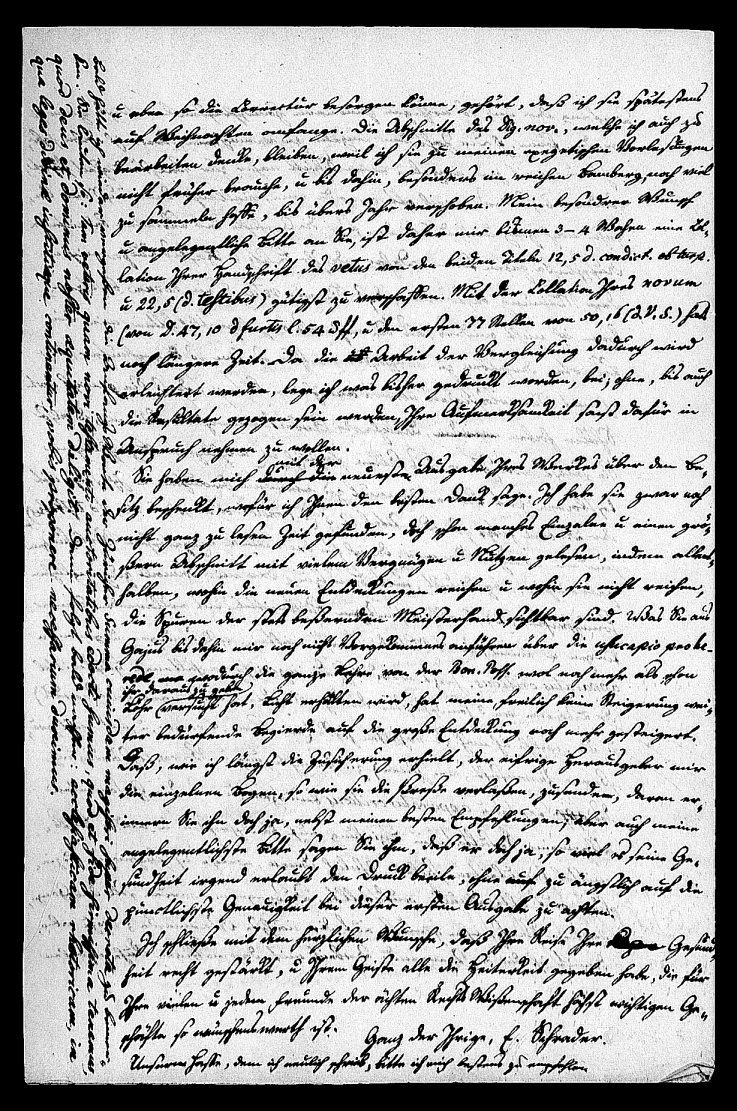 u eben so die Correctur besorgen könne, gehört, daß ich sie spätestens
auf Weihnachten anfange. Die Abschnitte des Dig. nov., welche ich auch zu
bearbeiten denke, bleiben, weil ich sie zu meinen exegetischen Vorlesungen
nicht früher brauche, u bis dahin, besonders im reichen Bamberg, noch viel
zu sammeln hoffe, bis übers Jahr verschoben. Mein besondrer Wunsch
u angelegentliche Bitte an Sie, ist daher mir binnen 3–4 Wochen eine Col-
lation Ihrer Handschrift des vetus von den beiden Titeln 12, 5 d. condict. ob turp.
u 22, 5 (d. testibus) gütigst zu verschaffen. Mit der Collation Ihres novum
(von D. 47, 10 d furtis l. 54 und den ersten 77 Stellen von 50, 16 (d. V. S.) hat
noch längere Zeit. Da die Arbeit der Vergleichung dadurch wird
erleichtert werden, lege ich was bisher gedruckt worden, bei, ohne, bis auch
die Resultate gezogen sein werden, Ihre Aufmerksamkeit sonst dafür in
Anspruch nehmen zu wollen.
Sie haben mich mit der neuesten Ausgabe Ihres Werkes über den Be-
sitz beschenkt, wofür ich Ihnen den besten Dank sage. Ich habe sie zwar noch
nicht ganz zu lesen Zeit gefunden, doch schon manches Einzelne u einen grö-
ßern Abschnitt mit vielem Vergnügen u Nutzen gelesen, indem allent-
halben, wohin die neuen Entdeckungen reichen u wohin sie nicht reichen,
die Spuren der stets beßernden Meisterhand sichtbar sind. Was Sie aus
Gajus bis dahin mir noch nicht Vorgekommenes anführen über die usucapio pro he-
rede, wodurch die ganze Lehre von der Bon. Poss. wol noch mehr als schon
ihr daraus zu geben
Löhr versucht hat, Licht erhalten wird, hat meine freilich keine Steigerung wei-
ter bedürfende Begierde auf die große Entdeckung noch mehr gesteigert.
Daß, wie ich längst die Zusicherung erhielt, der eifrige Herausgeber mir
die einzelnen Bogen, so wie sie die Presse verlaßen, zusende, daran er-
innern Sie ihn doch ja, nebst meinen besten Empfehlungen; aber auch meine
angelegentlichste Bitte sagen Sie ihm, daß er doch ja, so viel es seine Ge-
sundheit irgend erlaubt den Druck beeile, ohne zu ängstlich auf die
pünctlichste Genauigkeit bei dieser ersten Ausgabe zu achten.
Ich schließe mit dem herzlichen Wunsche, daß Ihre Reise Ihre Gesund-
heit recht gestärkt, u Ihrem Geiste alle die Heiterkeit gegeben habe, die für
Ihre vielen u jedem Freunde der ächten Rechts Wissenschaft höchst wichtigen Ge-
schäfte so wünschenswerth ist.
Ganz der Ihrige, E. Schrader.
Unserm Hasse, dem ich neulich schrieb, bitte ich mich bestens zu empfehlen